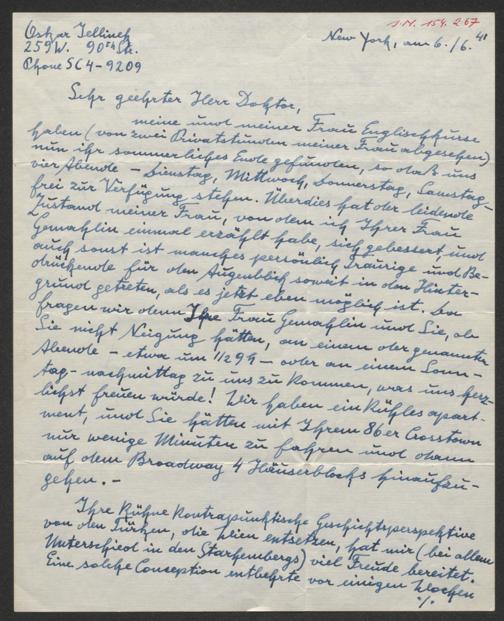 I.N. 154.267
Oskar Jellinek
259 W. 90th Str.
Phone SC 4-9209
New York, am 6./6. 41
Sehr geehrter Herr Doktor,
meine und meiner Frau Englischkurse
haben (von zwei Privatstunden meiner Frau abgesehen)
nun ihr sommerliches Ende gefunden, so daß uns
vier Abende – Dienstag, Mittwoch, Donnerstag, Samstag –
frei zur Verfügung stehen. Überdies hat der leidende
Zustand meiner Frau, von dem ich Ihrer Frau
Gemahlin einmal erzählt habe, sich gebessert, und
auch sonst ist manches persönlich Traurige und Be-
drückende für den Augenblick soweit in den Hinter-
grund getreten, als es jetzt eben möglich ist. Da
fragen wir denn Ihre Frau Gemahlin und Sie, ob
Sie nicht Neigung hätten, an einem der genannten
Abende – etwa um 1/2 9 h – oder an einem Sonn-
tag-nachmittag zu uns zu kommen, was uns herz-
lichst freuen würde! Wir haben ein kühles apart-
ment, und Sie hätten mit Ihrem 86er Crosstown
nur wenige Minuten zu fahren und dann
auf dem Broadway 4 Häuserblocks hinaufzu-
gehen. –
Ihre kühne kontrapunktische Geschichtsperspektive
von den Türken, die Wien entsetzen, hat mir (bei allem
Unterschied in den Starhembergs) viel Freude bereitet.
Eine solche Conception entbehrte vor einigen Wochen
./.